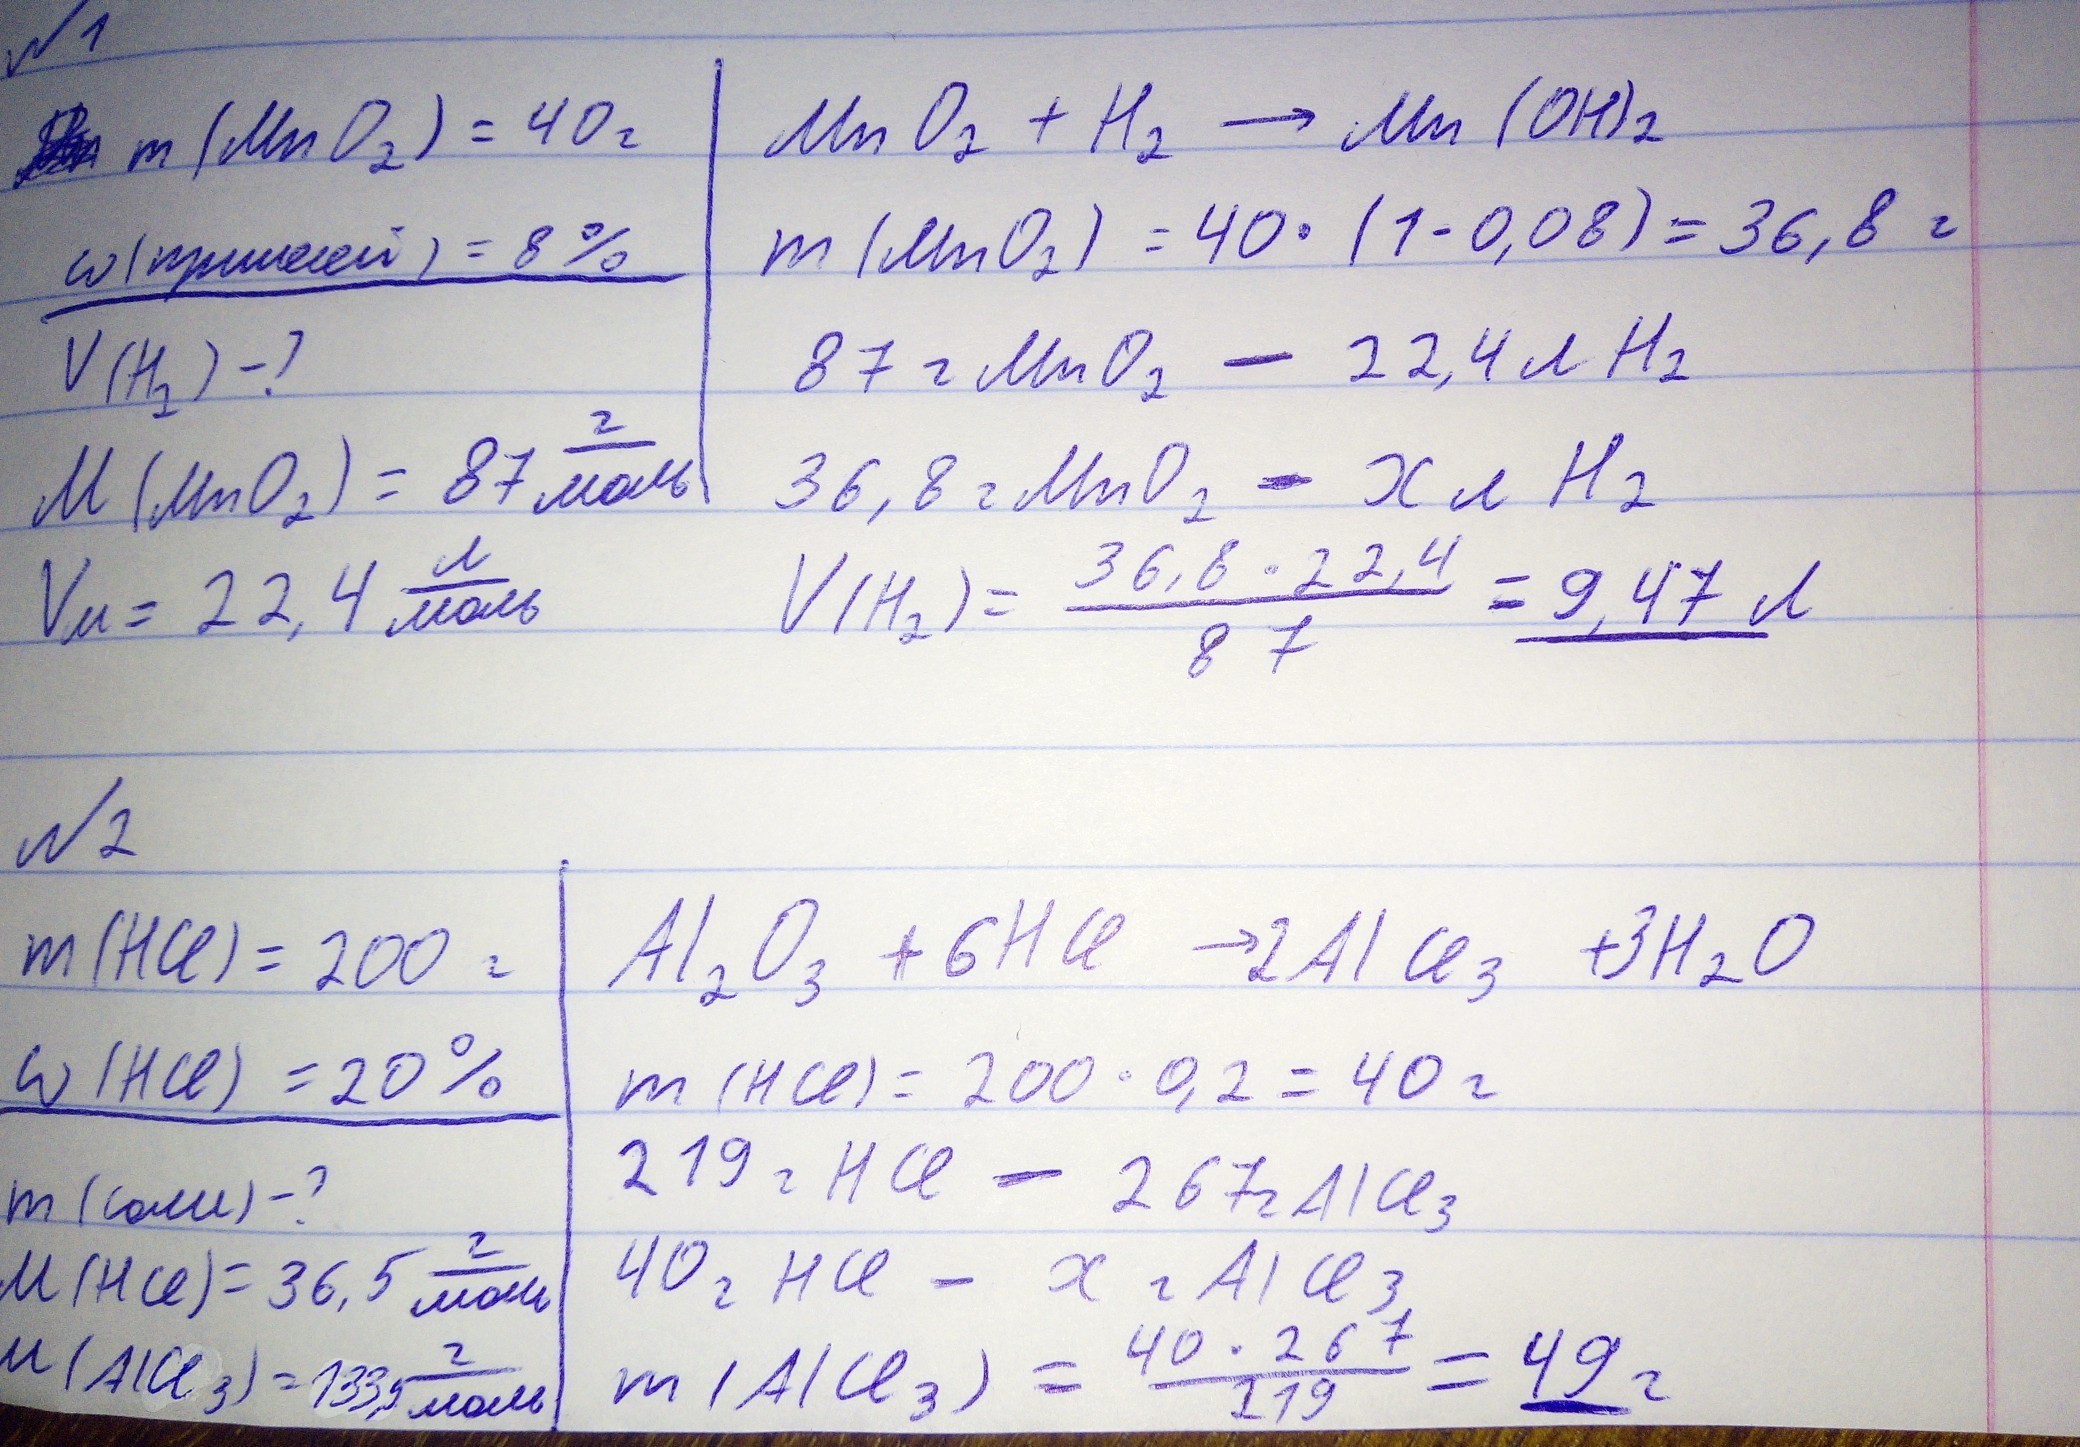 №1
m (MnO₂) = 40 г
ω(примесей) = 8 %
V(H₂) - ?
M (MnO₂) = 87 г/моль
Vм = 22,4 л/моль
MnO₂ + H₂ → Mn (OH)₂
m (MnO₂) = 40 · (1 - 0,08) = 36,8 г
87 г MnO₂ — 22,4 л H₂
36,8 г MnO₂ - x л H₂
V(H₂) = 36,8 · 22,4 / 87 = 9,47 л
№2
m (HCl) = 200 г
ω (HCl) = 20 %
m (соли) - ?
M (HCl) = 36,5 г/моль
M (AlCl₃) = 133,5 г/моль
Al₂O₃ + 6HCl → 2AlCl₃ + 3H₂O
m (HCl) = 200 · 0,2 = 40 г
219 г HCl — 267 г AlCl₃
40 г HCl - x г AlCl₃
m (AlCl₃) = 40 · 267 / 219 = 49 г